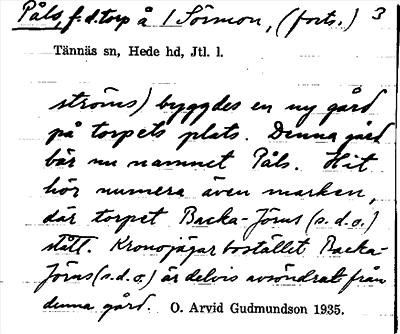 Påls, f.d. torp å / Sörmon, (forts.) 3
Tännäs sn, Hede hd, Jtl. l.
ströms) byggdes en ny gård
på torpets plats. Denna gård
bär nu namnet Påls. Hit
hör numera även marken,
där torpet Backa-Jöns (s.d.o.)
stått. Kronojägarbostället Backa-
Jöns (s.d.o.) är delvis avsöndrat från
denna gård. O. Arvid Gudmundson 1935.